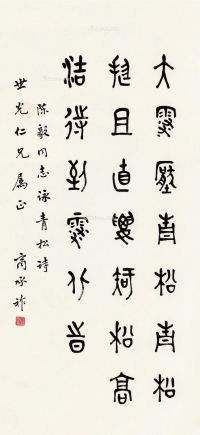 大雪壓青松青松
挺且直要知松高
洁待到雪化時
陳毅同志詠青松詩
世光仁兄屬正 商承祚